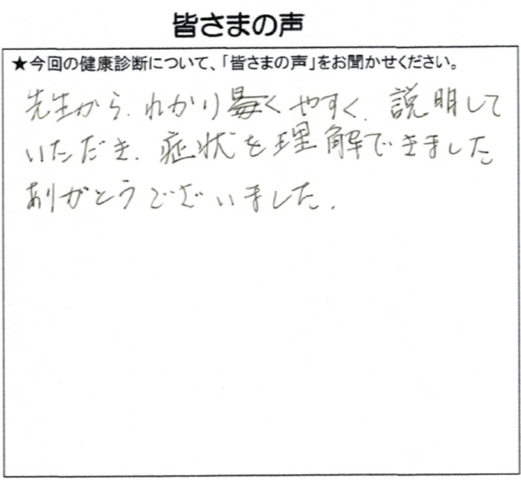 皆さまの声
★今回の健康診断について、「皆さまの声」をお聞かせください。
先生から、わかりやすく、説明して
いただき、症状を理解できました
ありがとうございました。